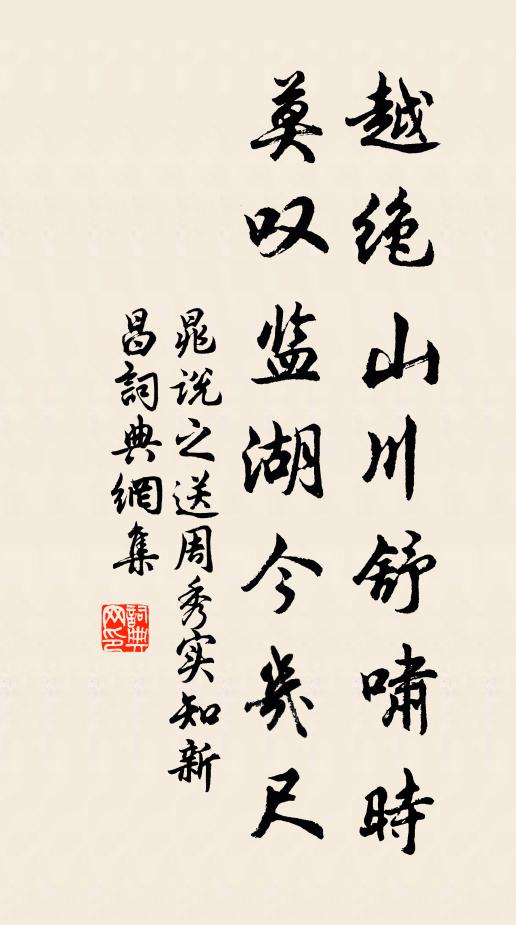 越绝山川舒啸時
莫叹监湖今幾尺
晁说之送周秀实知新
昌詞典網集
詞典网印